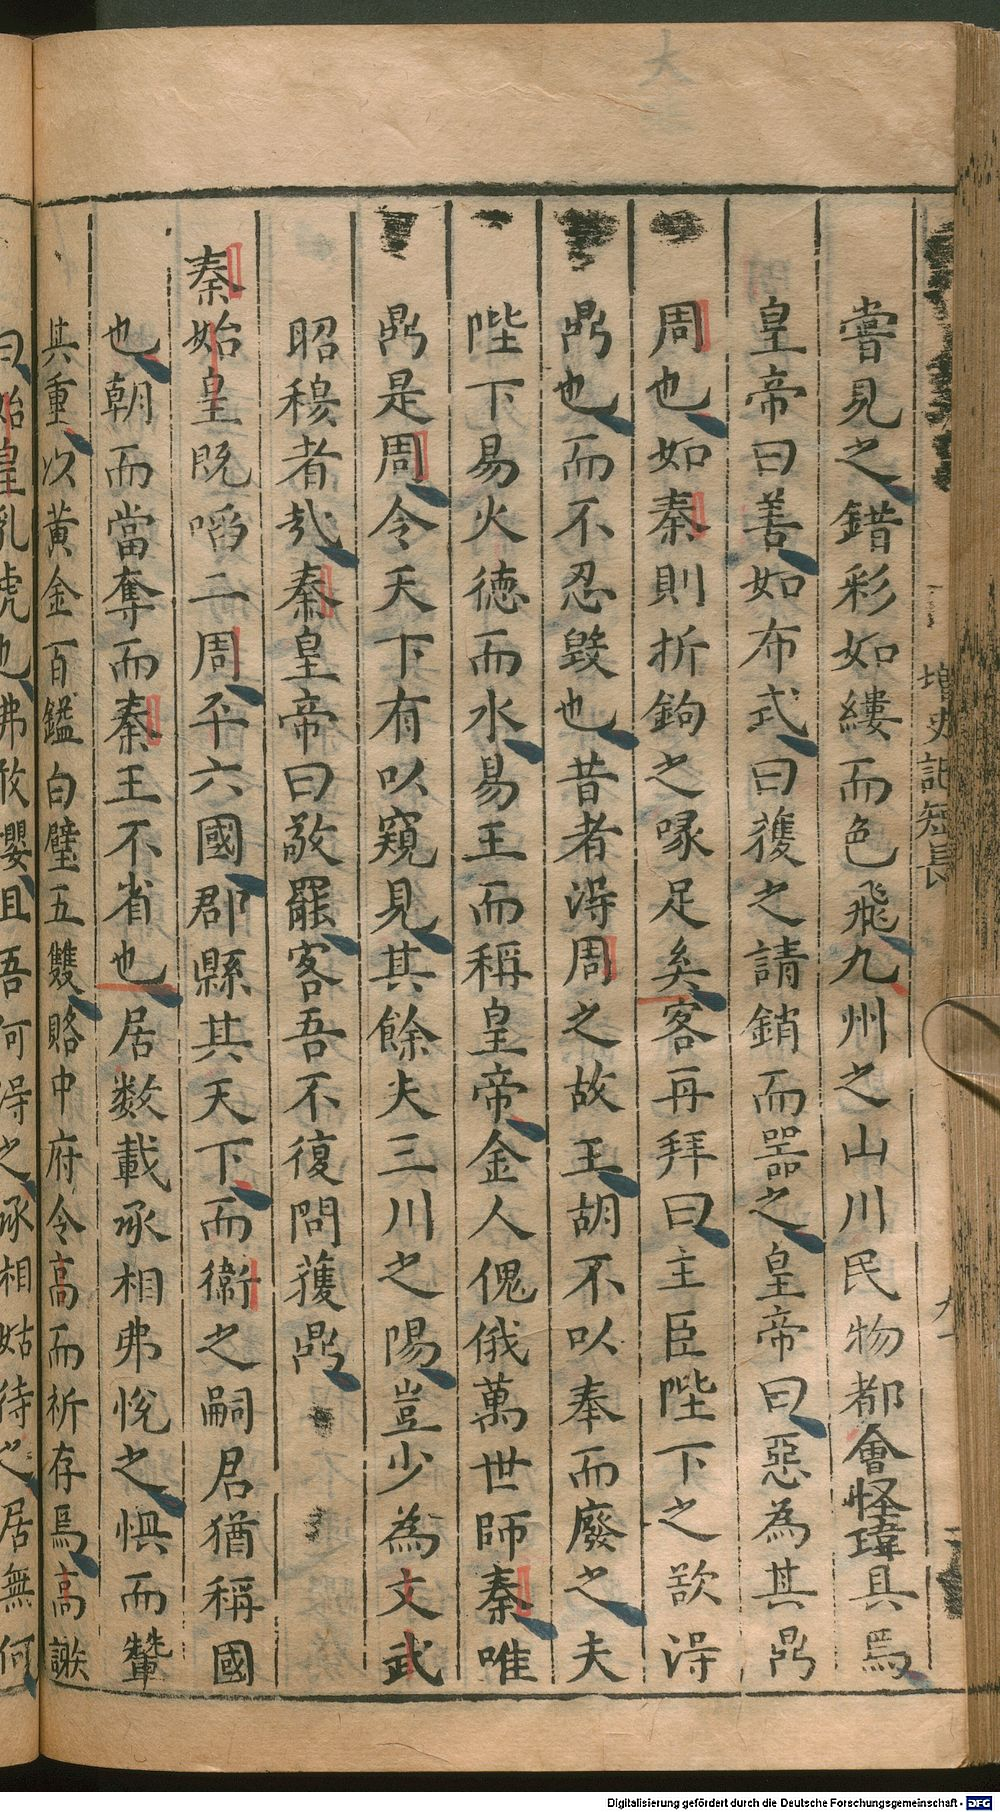 增史記短長
嘗見之錯彩如縷而色飛九州之山川民物都會怪瑋具焉
皇帝曰善如布式曰獲之請銷而器之皇帝曰惡為其鼎
周也如秦則折鉤之喙足矣客再拜曰主臣陛下之欲得
鼎也而不忍毀也昔者得周之故王胡不以奉而廢之夫
陛下易火德而水易王而稱皇帝金人傀俄萬世師秦唯
鼎是周令天下有以窺見其餘夫三川之陽豈少為文武
昭穆者㦲秦皇帝曰敬罷客吾不復問獲鼎
秦始皇既㗖二周平六國郡縣其天下而衞之嗣君猶稱國
也朝而當奪而秦王不省也居数載丞相弗悅之惧而輦
其重以黃金百鎰白璧五雙賂中府令高而祈存焉高謝
曰始皇乳虎也弗敢嬰且吾何得之丞相姑待之居無何
Digitalisierung gefördert durch die Deutsche Forschungsgemeinschaft - DFG